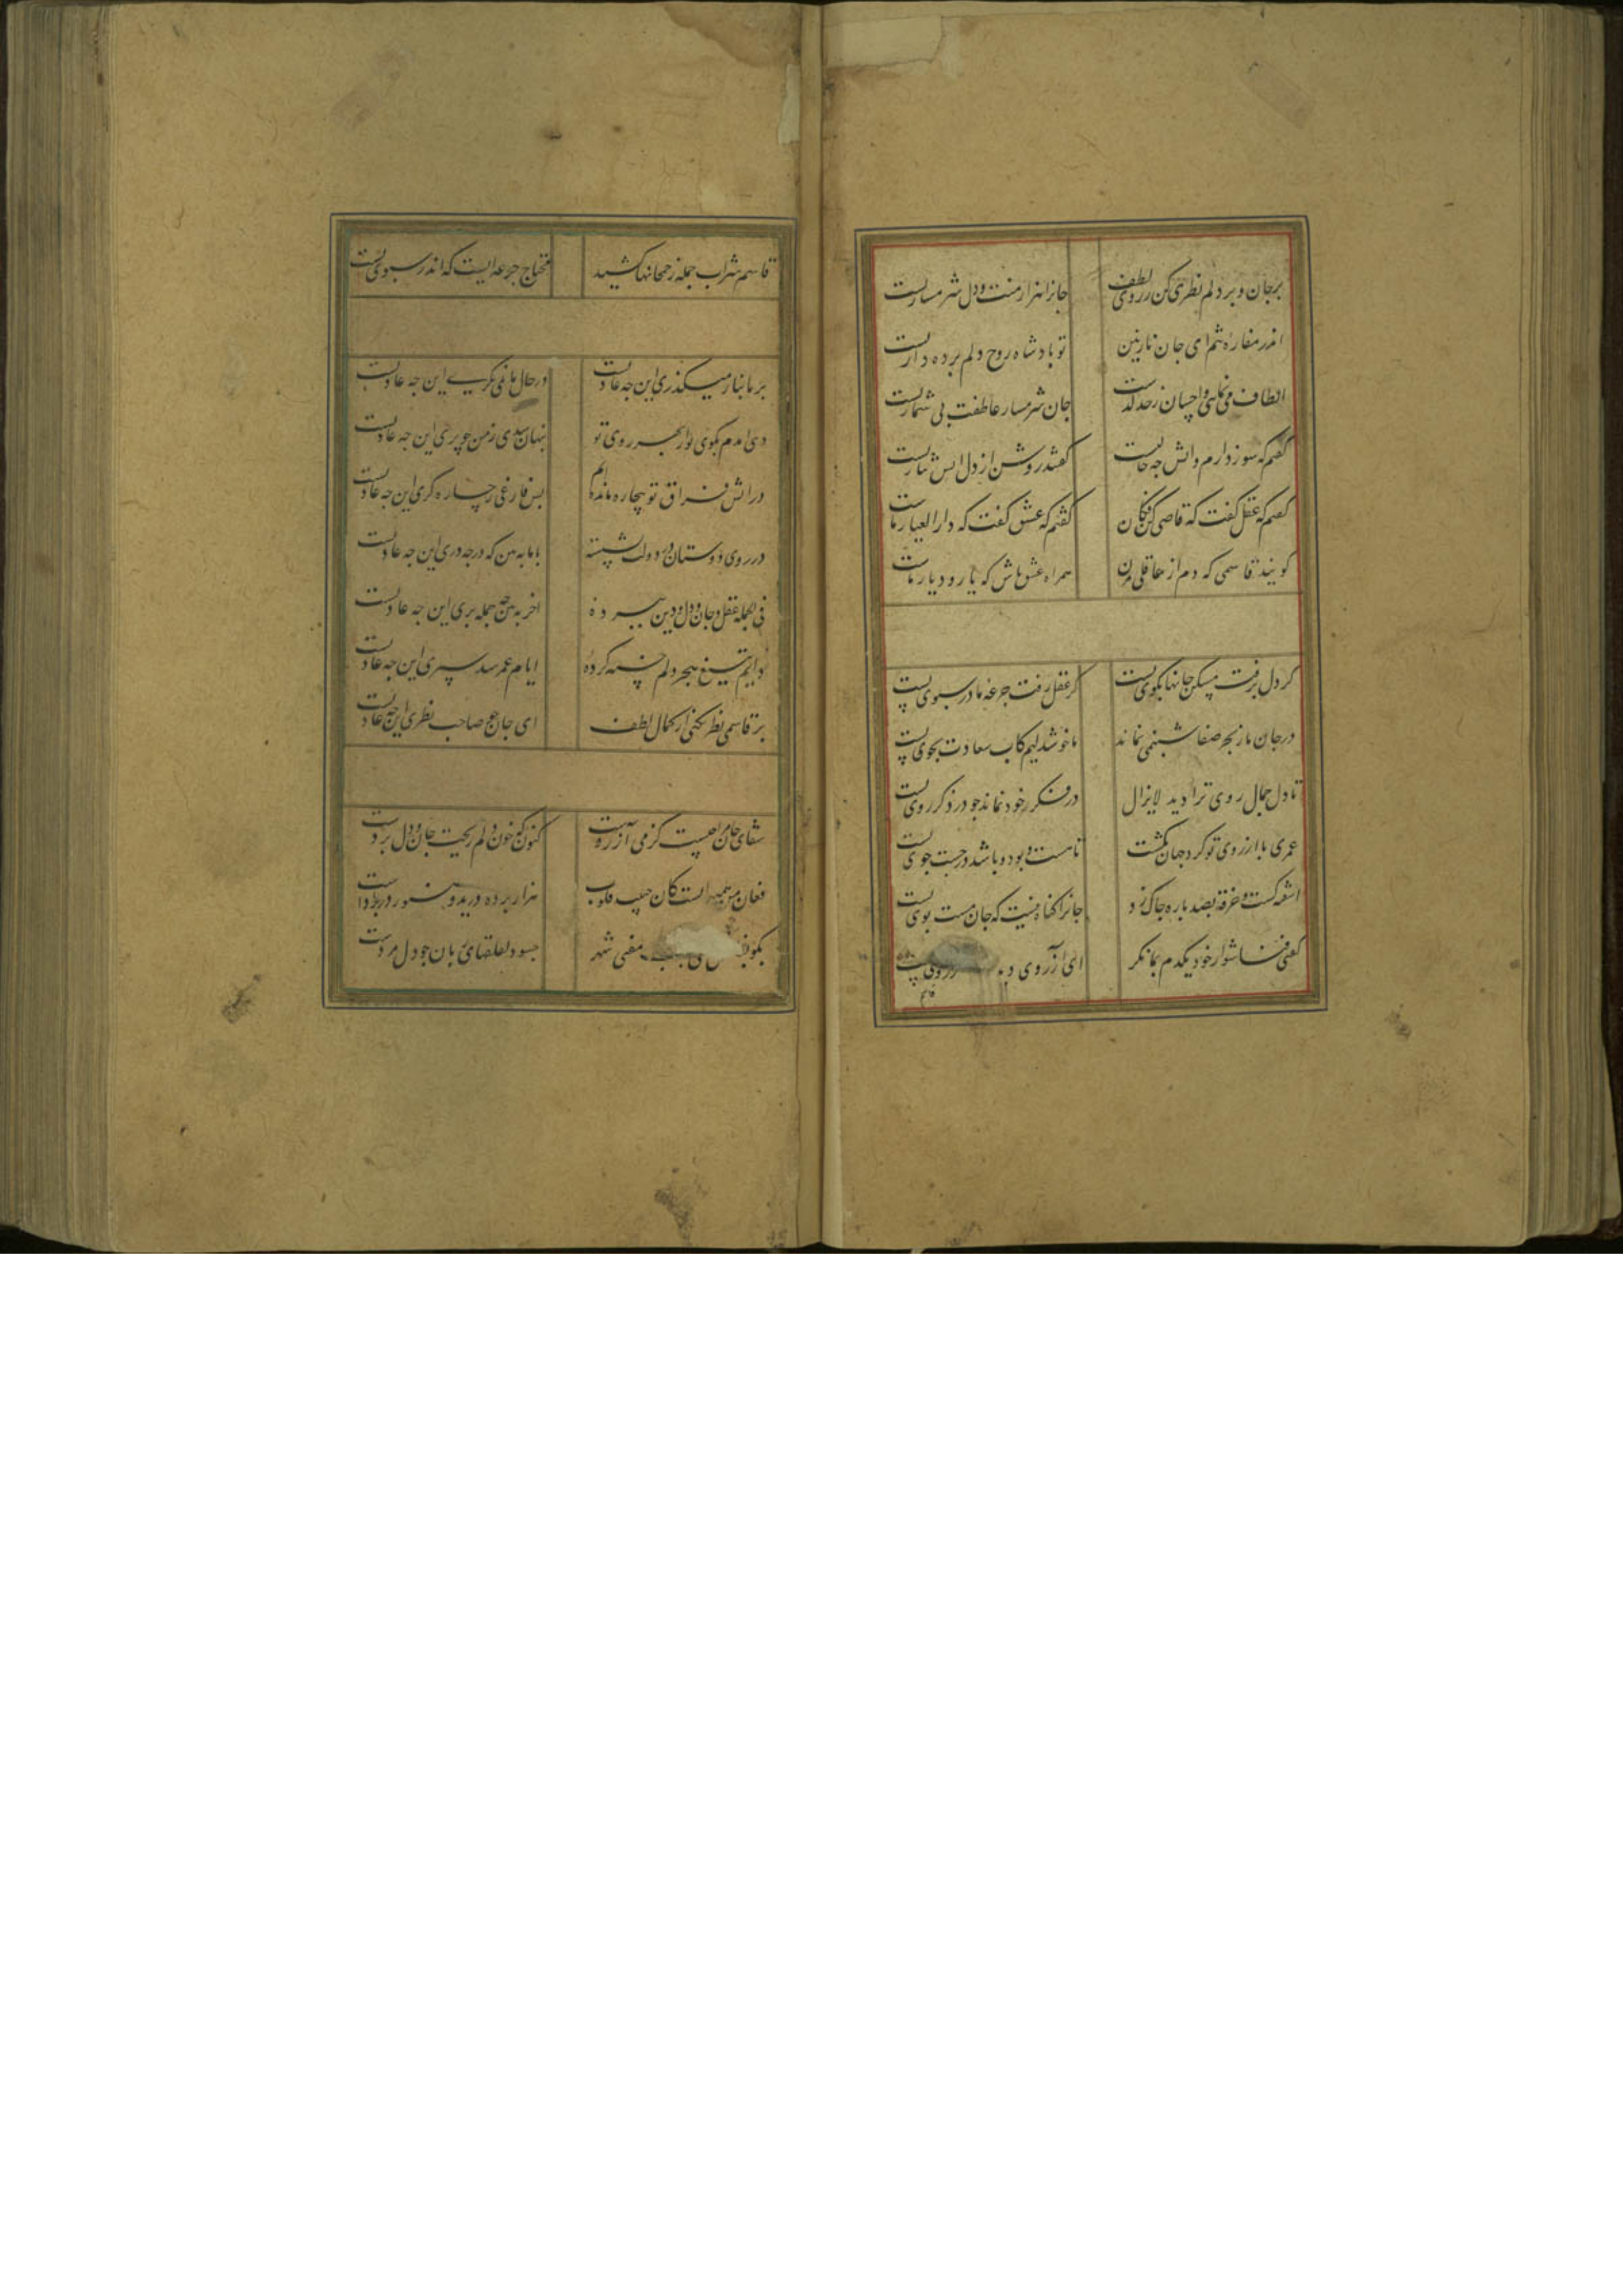 برجان و بر دلم نظری کن ز روی لطف جانرا هزار منت و دل شرمسار تست
اندر مغاره شم ای جان نازنین تو بادشاه روح و دلم برده دار تست
الطاف می نمایی و احسان ز حد گذشت جان شرمسار عاطفت بی شمار تست
کفتم که سوز دارم و اتش جه حالتست کفتند روشن از دل اتش نثار تست
کفتم که عقل کفت که قاضی کن فکان کفتم که عشق کفت که دار العیار ماست
کویند قاسمی که دم از عاقلی مزن همراه عشق باش که یار و دیار ماست
کر دل برفت مسکن جانها بکوی تست کر عقل رفت جرعه ما در سبوی تست
در جان ما ز بحر صفا شبنمی نماند ما خوشدلیم کاب سعادت بجوی تست
تا دل جمال روی ترا دید لایزال در فکر خود نماند جو در ذکر روی تست
عمری با ارزوی تو کرد جهان بکشت تا هست و بود و باشد در جست جوی تست
اشفته کشت و خرقه بصد باره جاک زد جانرا کناه نیست که جان مست بوی تست
کفتی فنا شو از خود یکدم بما نکر ای آرزوی
قاسم
قاسم شراب جمله ز خمخانها کشید محتاج جرعه ایست که اندر سبوی تست
بر ما بناز میکذری این جه عادتست در حال ما نمی نکری این جه عادتست
دی امدم بکوی تو از بهر روی تو بنهان شدی ز من جو پری این جه عادتست
در اتش فراق تو بیچاره مانده ایم بس فارغی ز چاره کری این جه عادتست
در روی دوستان در دولت ببسته با ما به من که در جه دری این جه عادتست
فی الجمله عقل و جان و دل و دین ببرده اخر به من جه جمله بری این جه عادتست
دایم بتیغ هجر دلم خسته کرده ایام عمر شد سپری این جه عادتست
بر قاسمی نظر نکنی از کمال لطف ای جان جو صاحب نظری این جه عادتست
شفای جان من لعلیست کز می آزردست کنون که خون دلم ریخت جان و دل بردست
فغان من همه اینست کان حبیب قلوب هزار برده دریده و هنوز در بردست
مفتی شهر جسود لعلقهای بان جو دل مردست